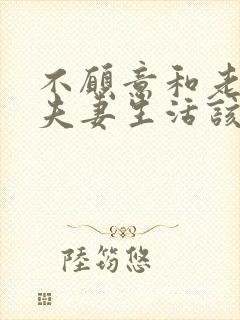 不願意和老
夫妻生活該
陸筠悠